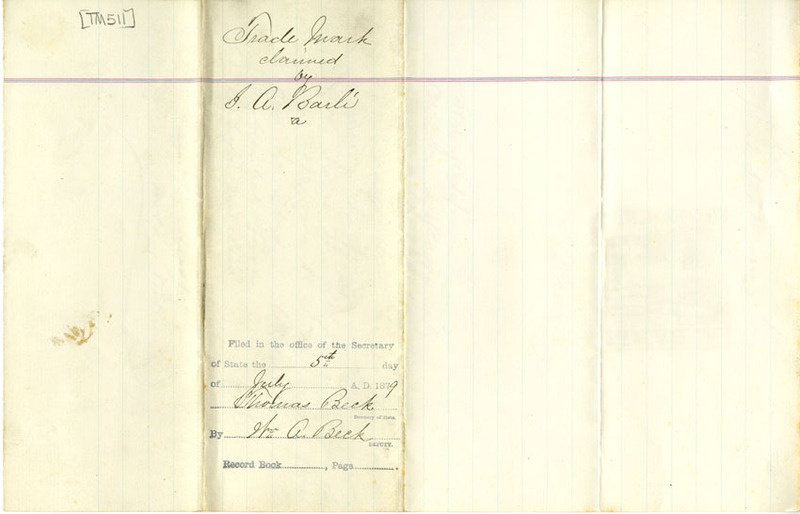 [TM511]
Trade Mark
claimed
by
J. A. Barli
Filed in the office of the Secretary
of State the 5th day
of July A. D. 1879
Thomas Beck
Secretary of State.
By Wm A. Beck
DEPUTY.
Record Book, Page.